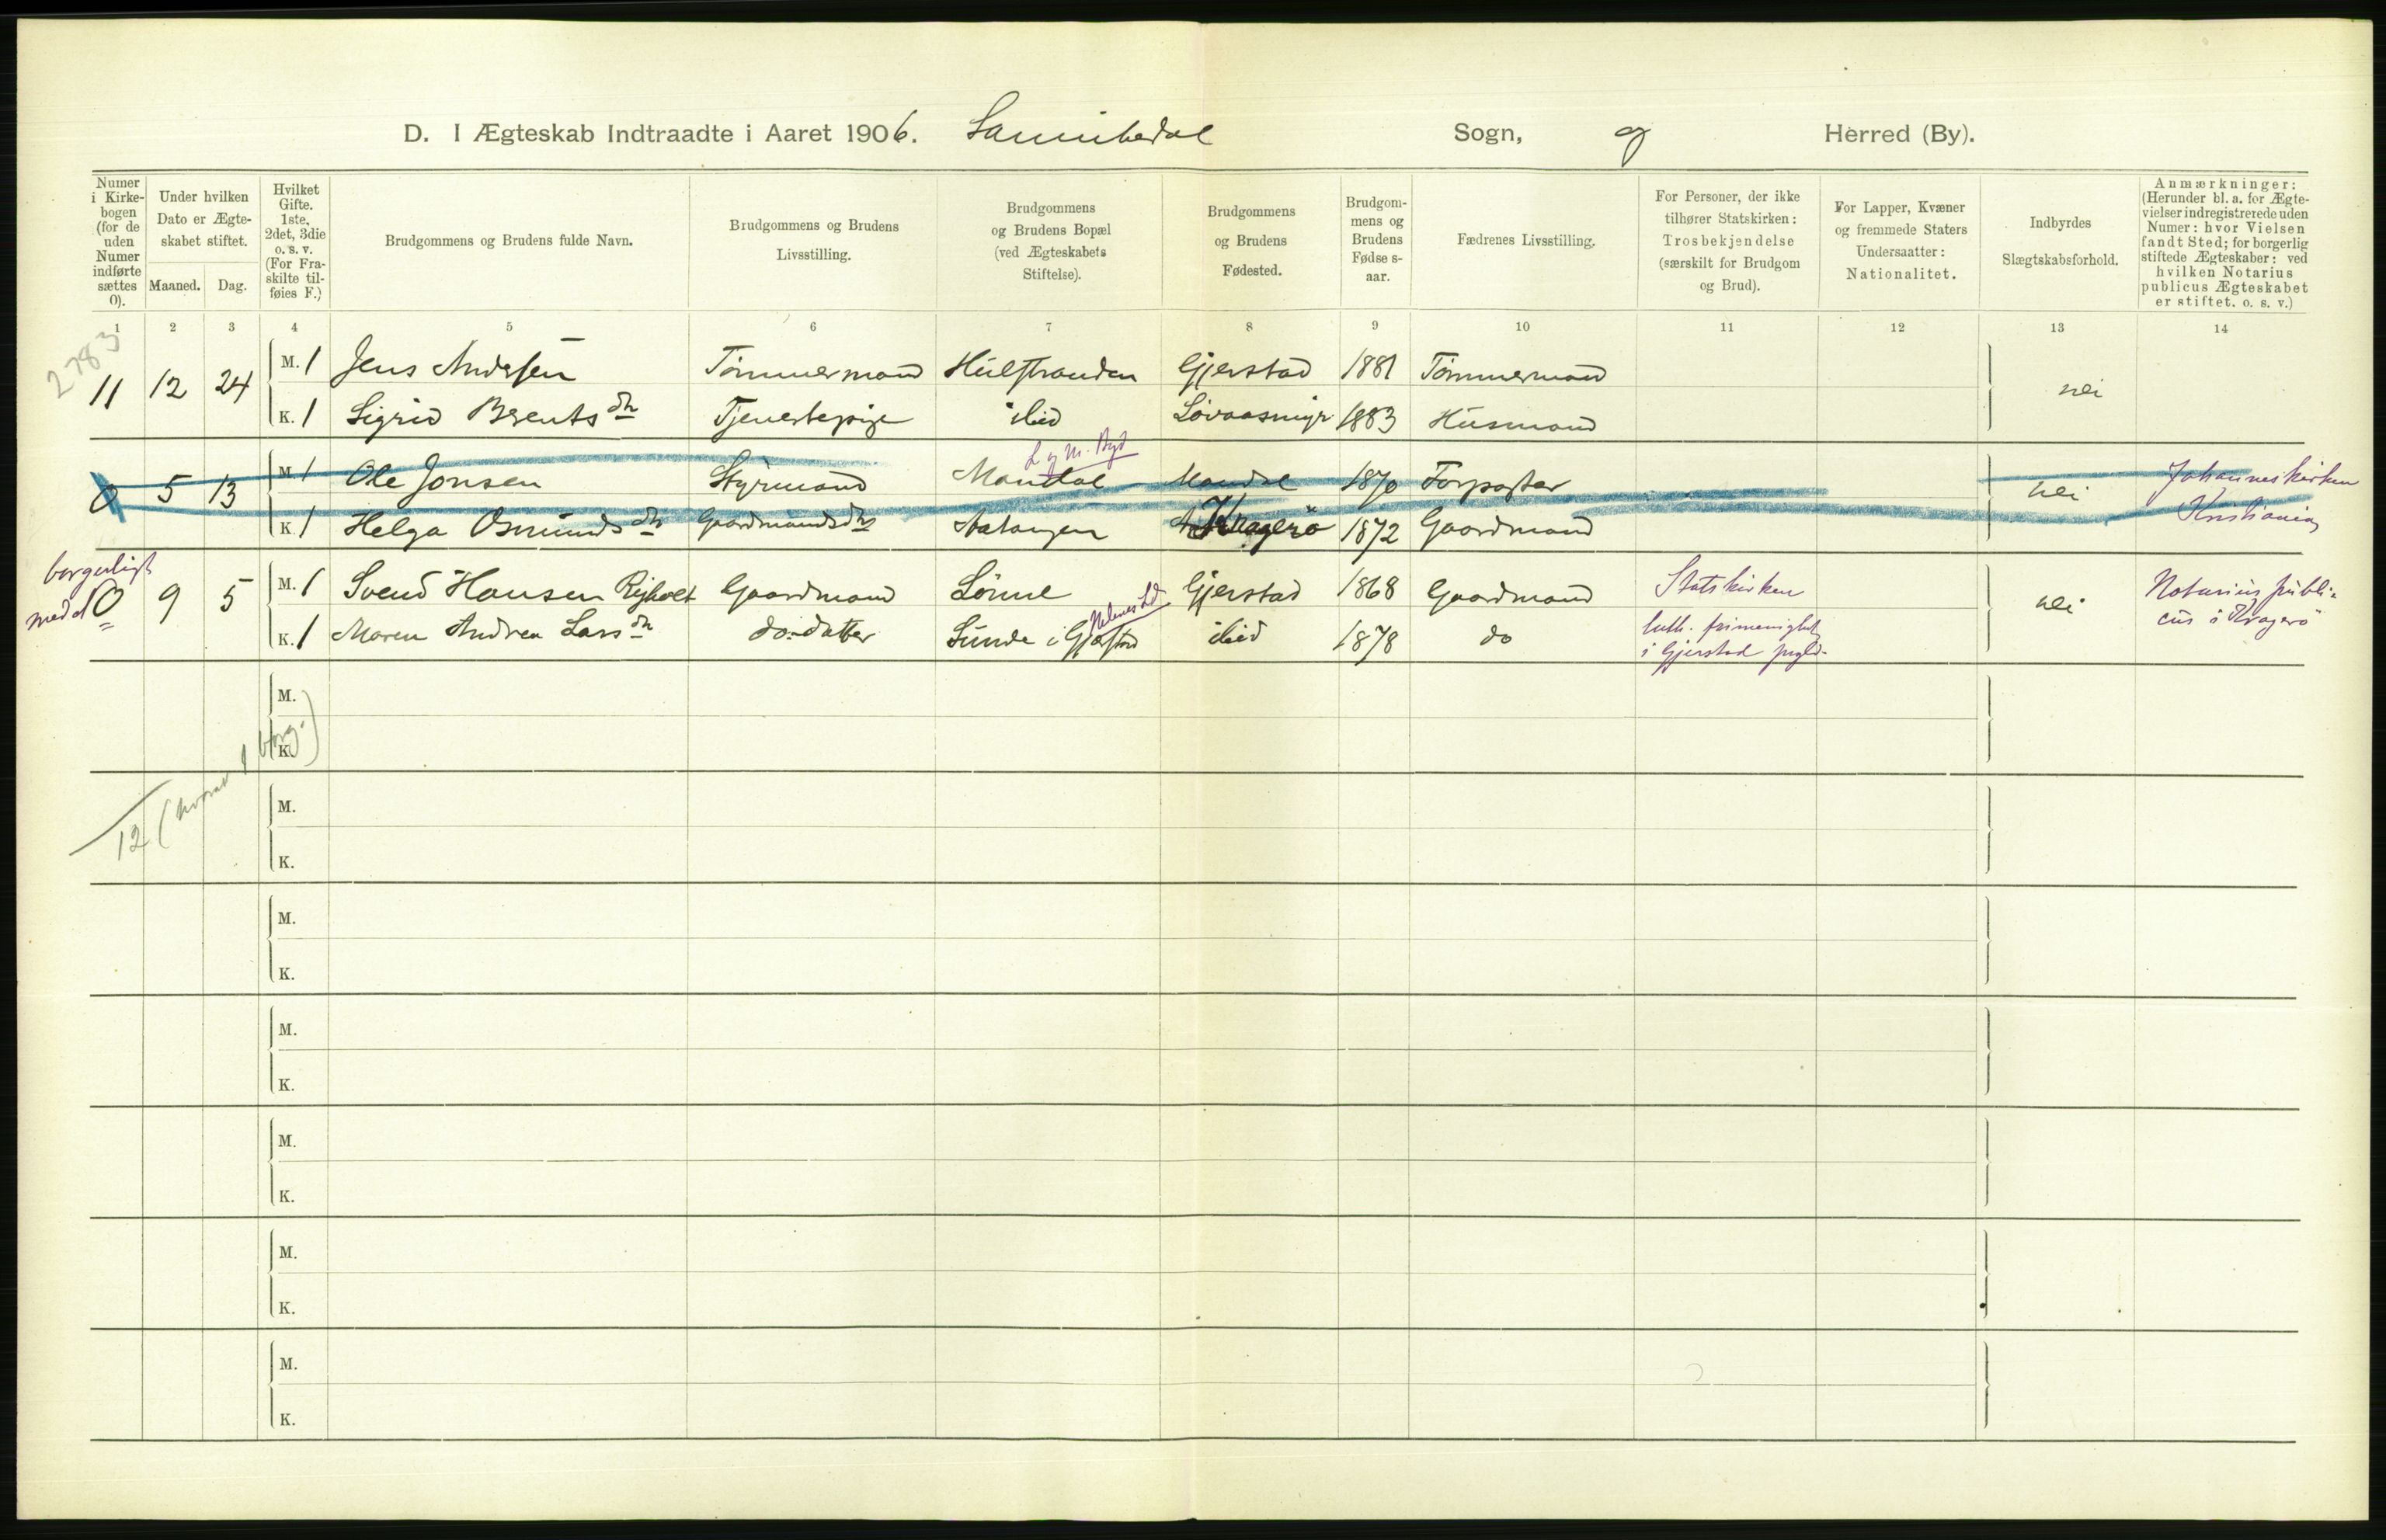 D. I Ægteskab Indtraadte i Aaret 1906. Sannikedal Sogn, og Herred (By).
Numer i Kirkebogen (for de uden Numer indførte sættes 0).
Under hvilken Dato er Ægteskabet stiftet.
Maaned. Dag.
Hvilket Gifte. 1ste, 2det, 3die o. s. v. (For Fraskilte tilføies F.)
Brudgommens og Brudens fulde Navn.
Brudgommens og Brudens Livsstilling.
Brudgommens og Brudens Bopæl (ved Ægteskabets Stiftelse).
Brudgommens og Brudens Fødested.
Brudgommens og Brudens Fødselsaar.
Fædrenes Livsstilling.
For Personer, der ikke tilhører Statskirken: Trosbekjendelse (særskilt for Brudgom og Brud).
For Lapper, Kvæner og fremmede Staters Undersaatter: Nationalitet.
Indbyrdes Slægtskabsforhold.
Anmærkninger: (Herunder bl. a. for Ægtevielser indregistrerede uden Numer: hvor Vielsen fandt Sted; for borgerlig stiftede Ægteskaber: ved hvilken Notarius publicus Ægteskabet er stiftet. o. s. v.)
1 2 3 4 5 6 7 8 9 10 11 12 13 14
2783
11 12 24 M. 1 Jens Andersen Tømmermand Hulstranden Gjerstad 1881 Tømmermand nei
K. 1 Sigrid Berentsdtr Tjenestepige ibid Lövaasmyr 1883 Husmand
L og M. Byd
0 5 13 M. 1 Ole Jonsen Styrmand Mandal Mandal 1870 Forpagter nei Johanneskirken
K. 1 Helga Osmundsdtr Gaardmandsdtr Aatangen Kragerö 1872 Gaardmand Kristiania
borgerligt
0 9 5 M. 1 Svend Hansen Ryholt Gaardmand Lönne Gjerstad 1868 Gaardmand Statskirken nei Notarius publi-
K. 1 Maren Andrea Larsdtr do-datter Sunde i Gjerstad Nedenes ibid 1878 do luth. frimenighet cus i Kragerö
i Gjerstad prgld.
M.
K.
12 (hvorav 1 borg.)
M.
K.
M.
K.
M.
K.
M.
K.
M.
K.
M.
K.